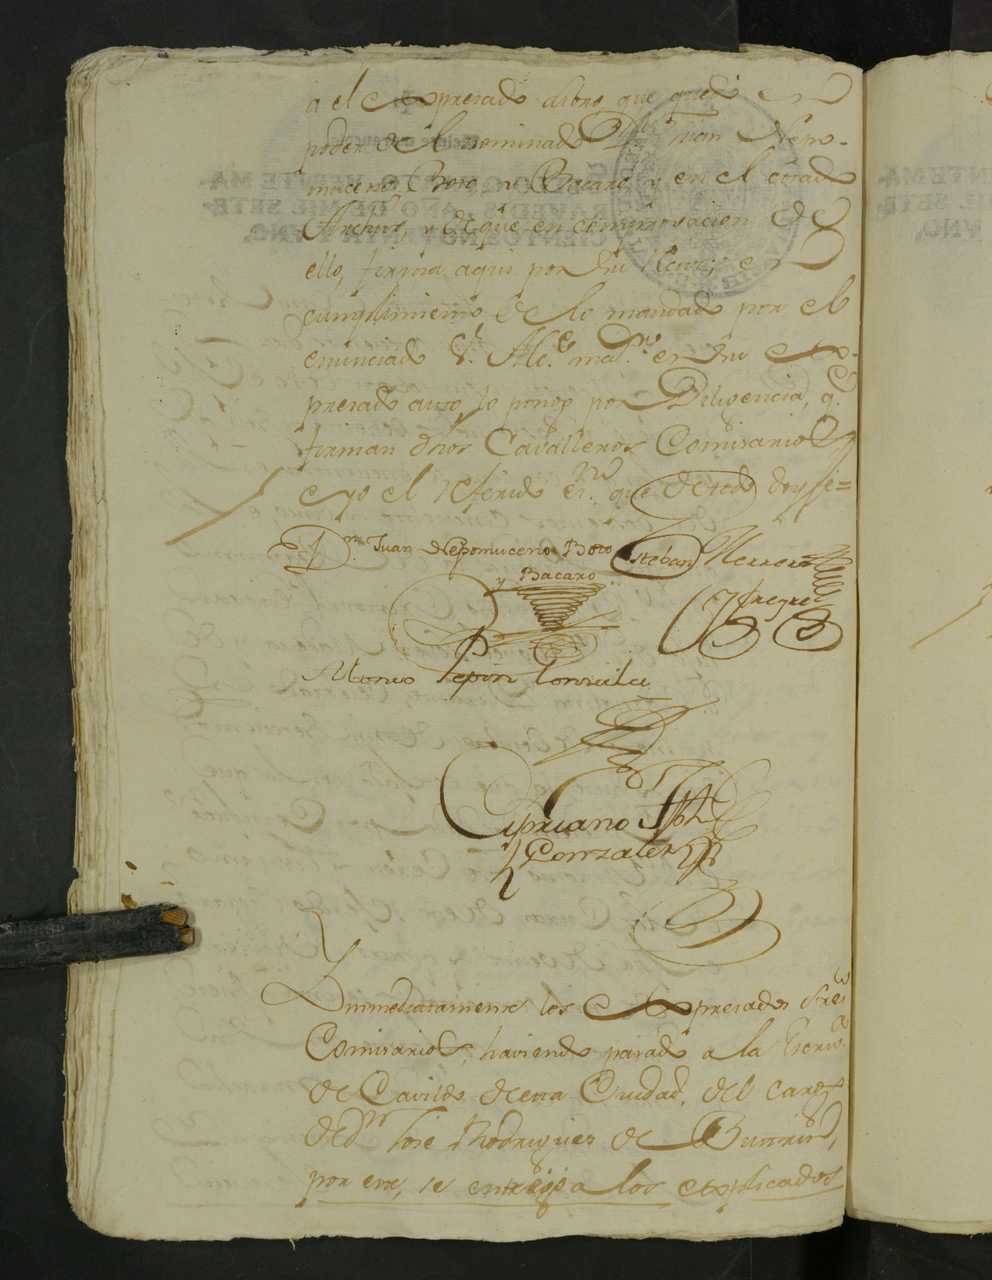 a el expresado libro que quedó en
poder de el nominado Dn. Juan Nepo-
muceno Boro y Bacaro, y en el citado
Archivo, y de que en comprovacion de
ello, firma aqui por su recivo, en
cumplimiento de lo mandado por el
enunciado Sr. Alce. mar. en su ex-
presado auto, lo pongo por Diligencia, q.e
firman dhos Cavalleros Comisarios
e yo el referido Esno. que de todo doy fe=
Dn. Juan Nepomuceno Boro
y Bacaro
Esteban Herrera
Alonso Pepin Gonzalez
Cipriano Jph
Gonzalez
Ynmediatamente los expresados Sres
Comisarios, haviendo pasado a la Escriva.
de Cavildo de esta Ciudad, del cargo
de Dn. Jose Rodriguez de
por este, se entregó a los explicados